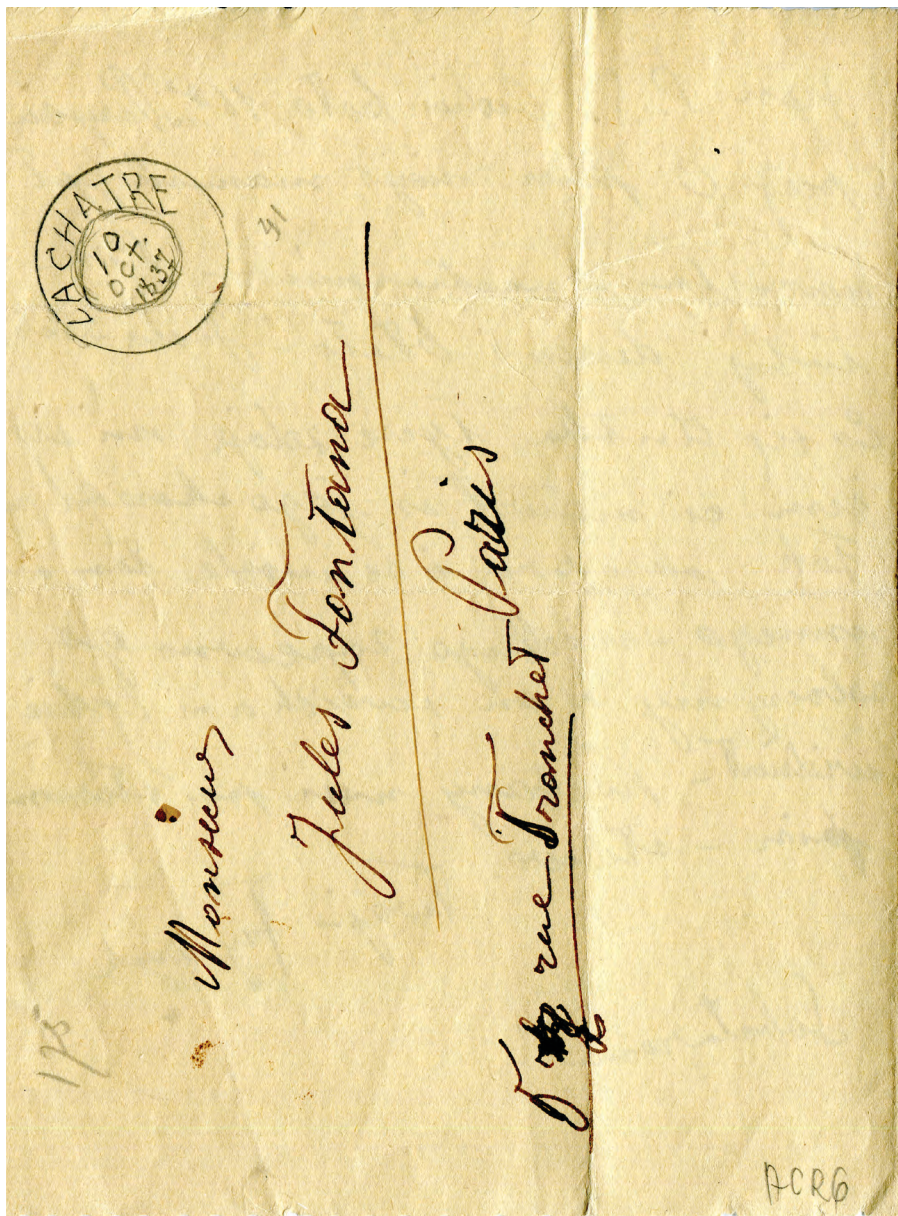 LA CHATRE
10
OCT.
1837
41
Monsieur
Jules Fontana
5 rue Tronchet Paris
175
ACR6